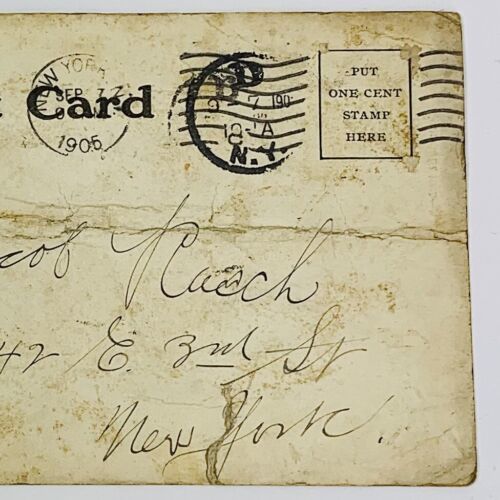 NEW YORK
SEP 7
1905
Card
7 190
12-A
N.Y.
PUT
ONE CENT
STAMP
HERE
cob Raach
42 E. 3rd St
New York.